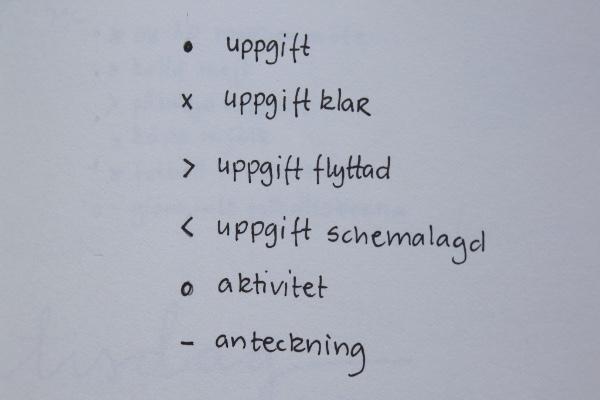 • uppgift
x uppgift klar
> uppgift flyttad
< uppgift schemalagd
o aktivitet
– anteckning